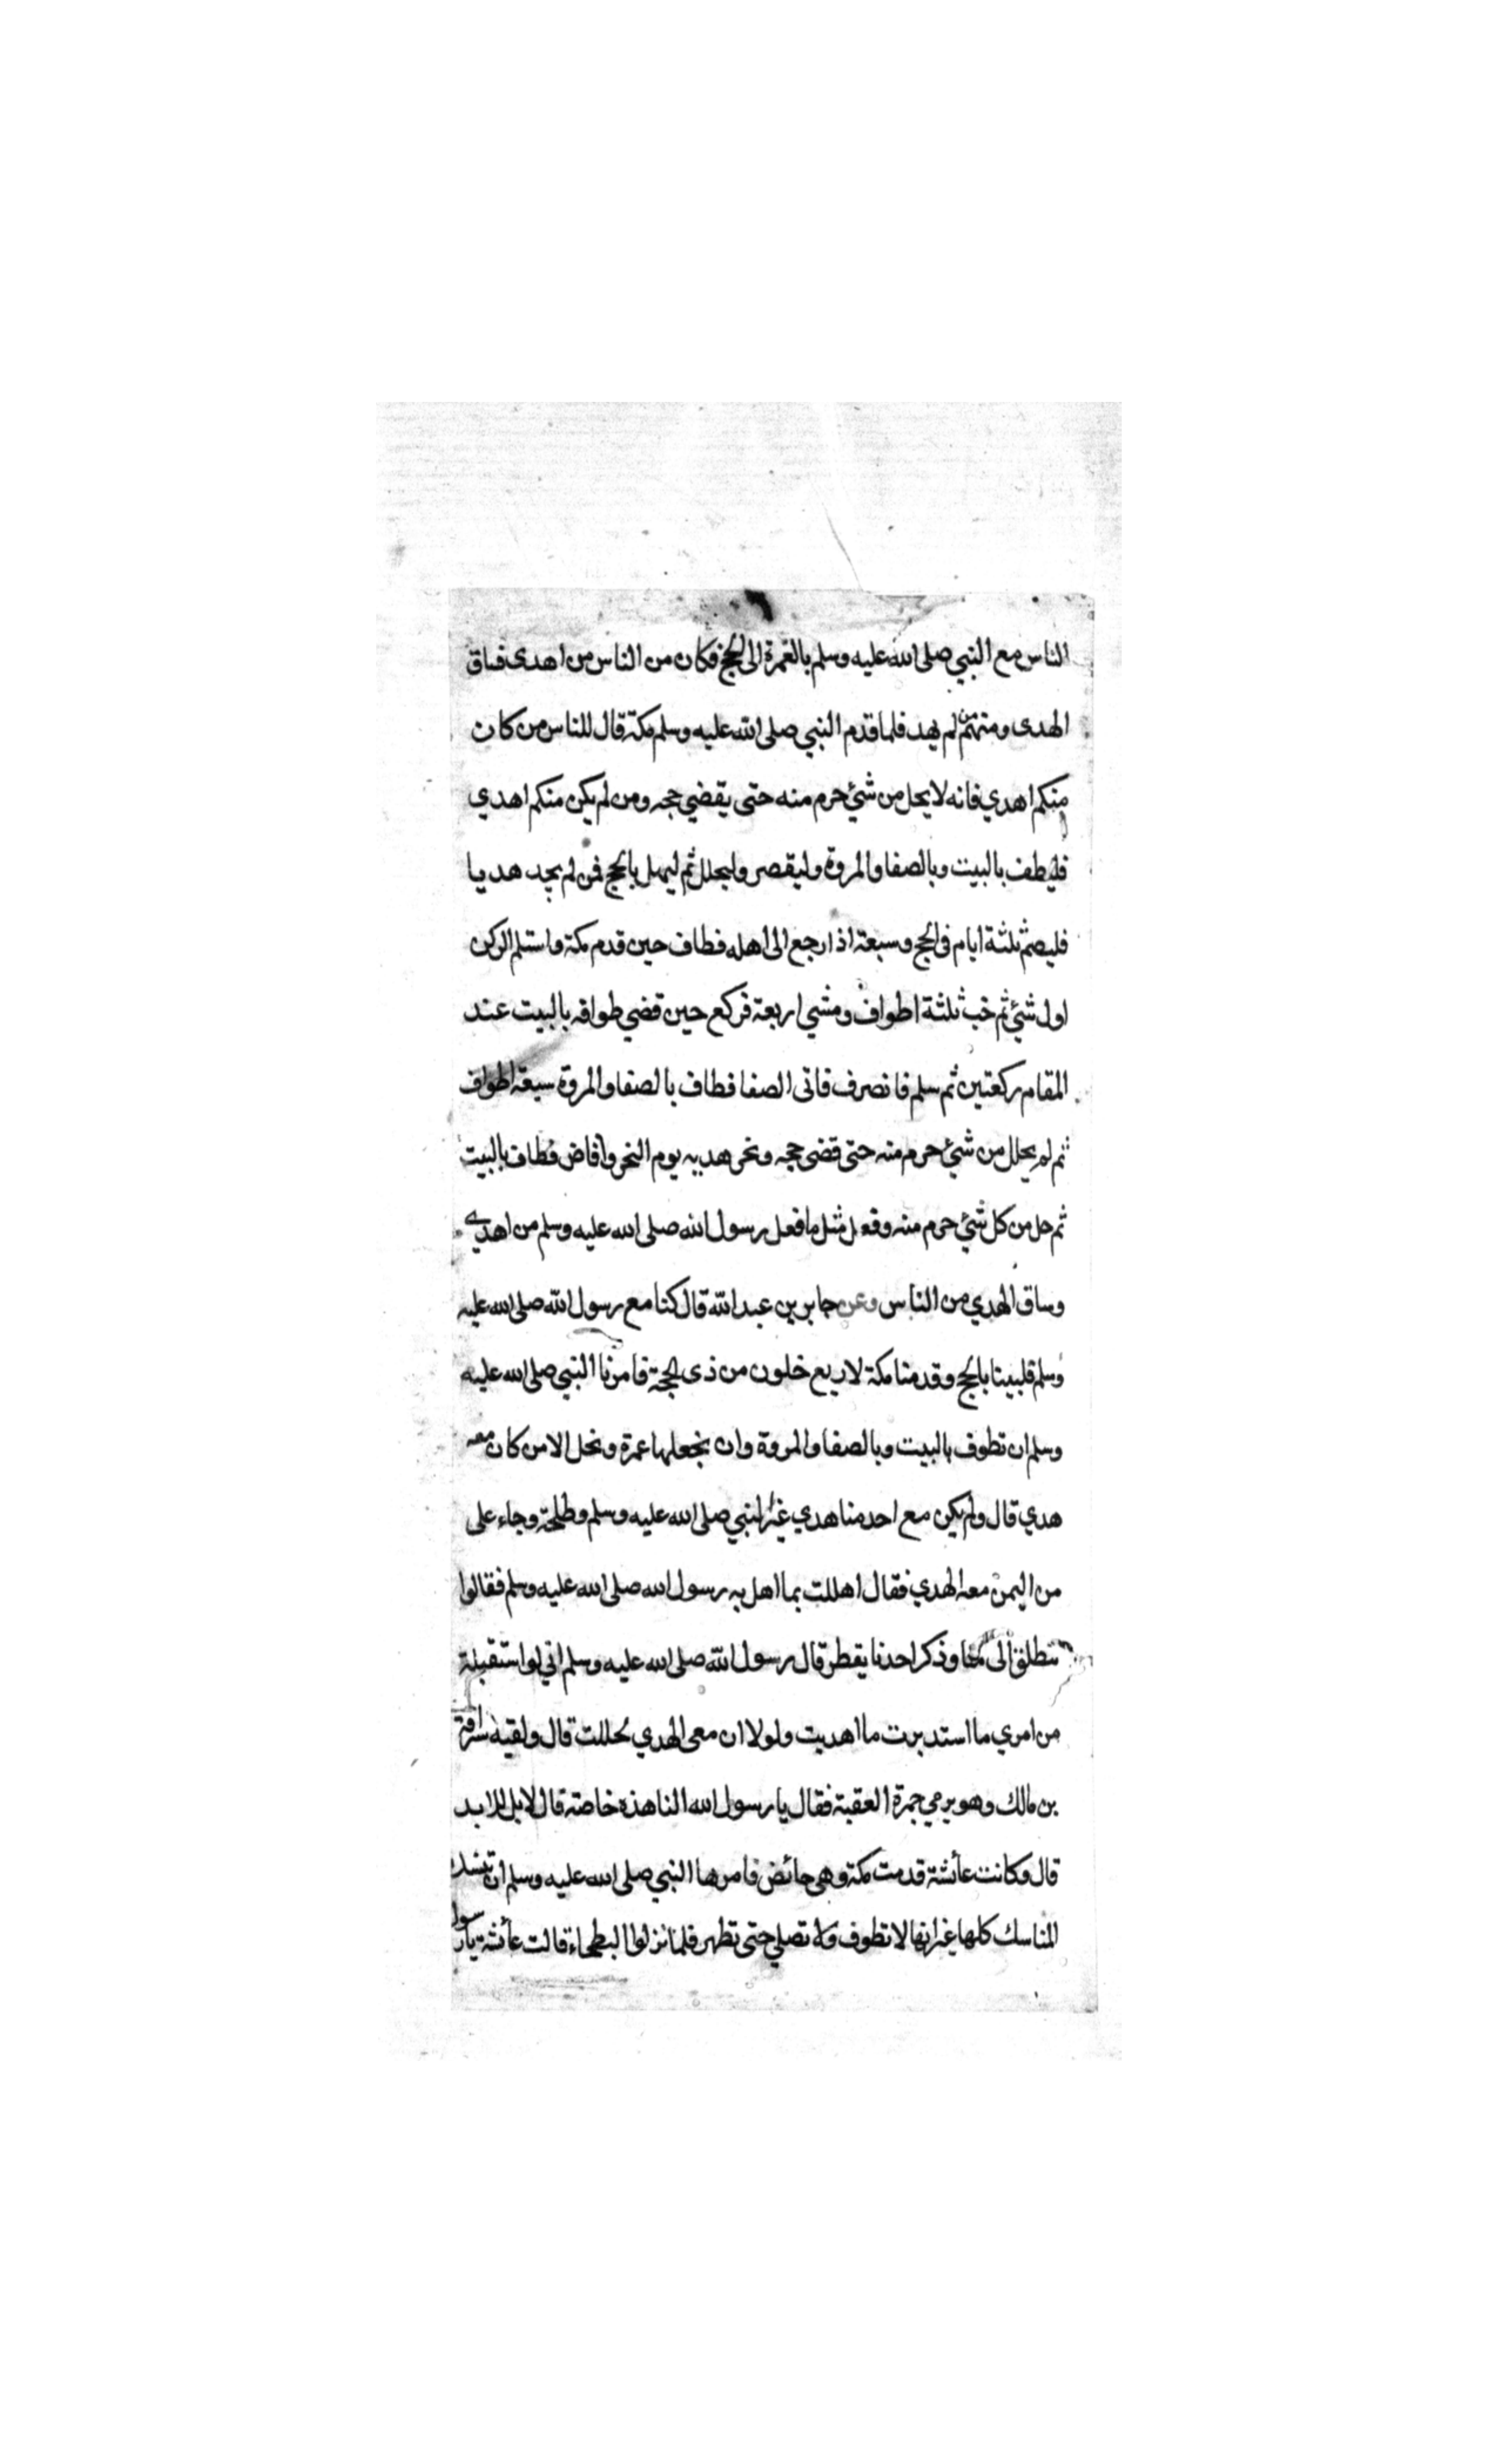 الناس مع النبي صلى الله عليه وسلم بالعمرة الى الحج فكان من الناس من اهدى فساق
الهدى ومنهم من لم يهد فلما قدم النبي صلى الله عليه وسلم مكة قال للناس من كان
منكم اهدي فانه لا يحل من شئ حرم منه حتى يقضي حجه ومن لم يكن منكم اهدي
فليطف بالبيت وبالصفا والمروة وليقصر وليحلل ثم ليهل بالحج فمن لم يجد هديا
فليصم ثلثة ايام في الحج وسبعة اذا رجع الى اهله فطاف حين قدم مكة واستلم الركن
اول شئ ثم خب ثلثة اطواف ومشي اربعة فركع حين قضي طوافه بالبيت عند
المقام ركعتين ثم سلم فانصرف فاتى الصفا فطاف بالصفا والمروة سبعة اطواف
ثم لم يحلل من شئ حرم منه حتى قضى حجه ونحر هديه يوم النحر وافاض فطاف بالبيت
ثم حل من كل شئ حرم منه وفعل مثل ما فعل رسول الله صلى الله عليه وسلم من اهدي
وساق الهدي من الناس وعن جابر بن عبد الله قال كنا مع رسول الله صلى الله عليه
وسلم فلبينا بالحج وقدمنا مكة لاربع خلون من ذى الحجة فامرنا النبي صلى الله عليه
وسلم ان نطوف بالبيت وبالصفا والمروة وان نجعلها عمرة ونحل الا من كان معه
هدي قال ولم يكن مع احد منا هدي غير النبي صلى الله عليه وسلم وطلحة وجاء على
من اليمن معه الهدي فقال اهللت بما اهل به رسول الله صلى الله عليه وسلم فقالوا
ننطلق الى منا وذكر احدنا يقطر قال رسول الله صلى الله عليه وسلم اني لو استقبلت
من امري ما استدبرت ما اهديت ولولا ان معى الهدي لحللت قال ولقيه سراقة
بن مالك وهو يرمي جمرة العقبة فقال يا رسول الله النا هذه خاصة قال لا بل للابد
قال وكانت عائشة قدمت مكة وهى حائض فامرها النبي صلى الله عليه وسلم ان تنسك
المناسك كلها غير انها لا تطوف ولا تصلي حتى تطهر فلما نزلوا البطحاء قالت عائشة يا رسول